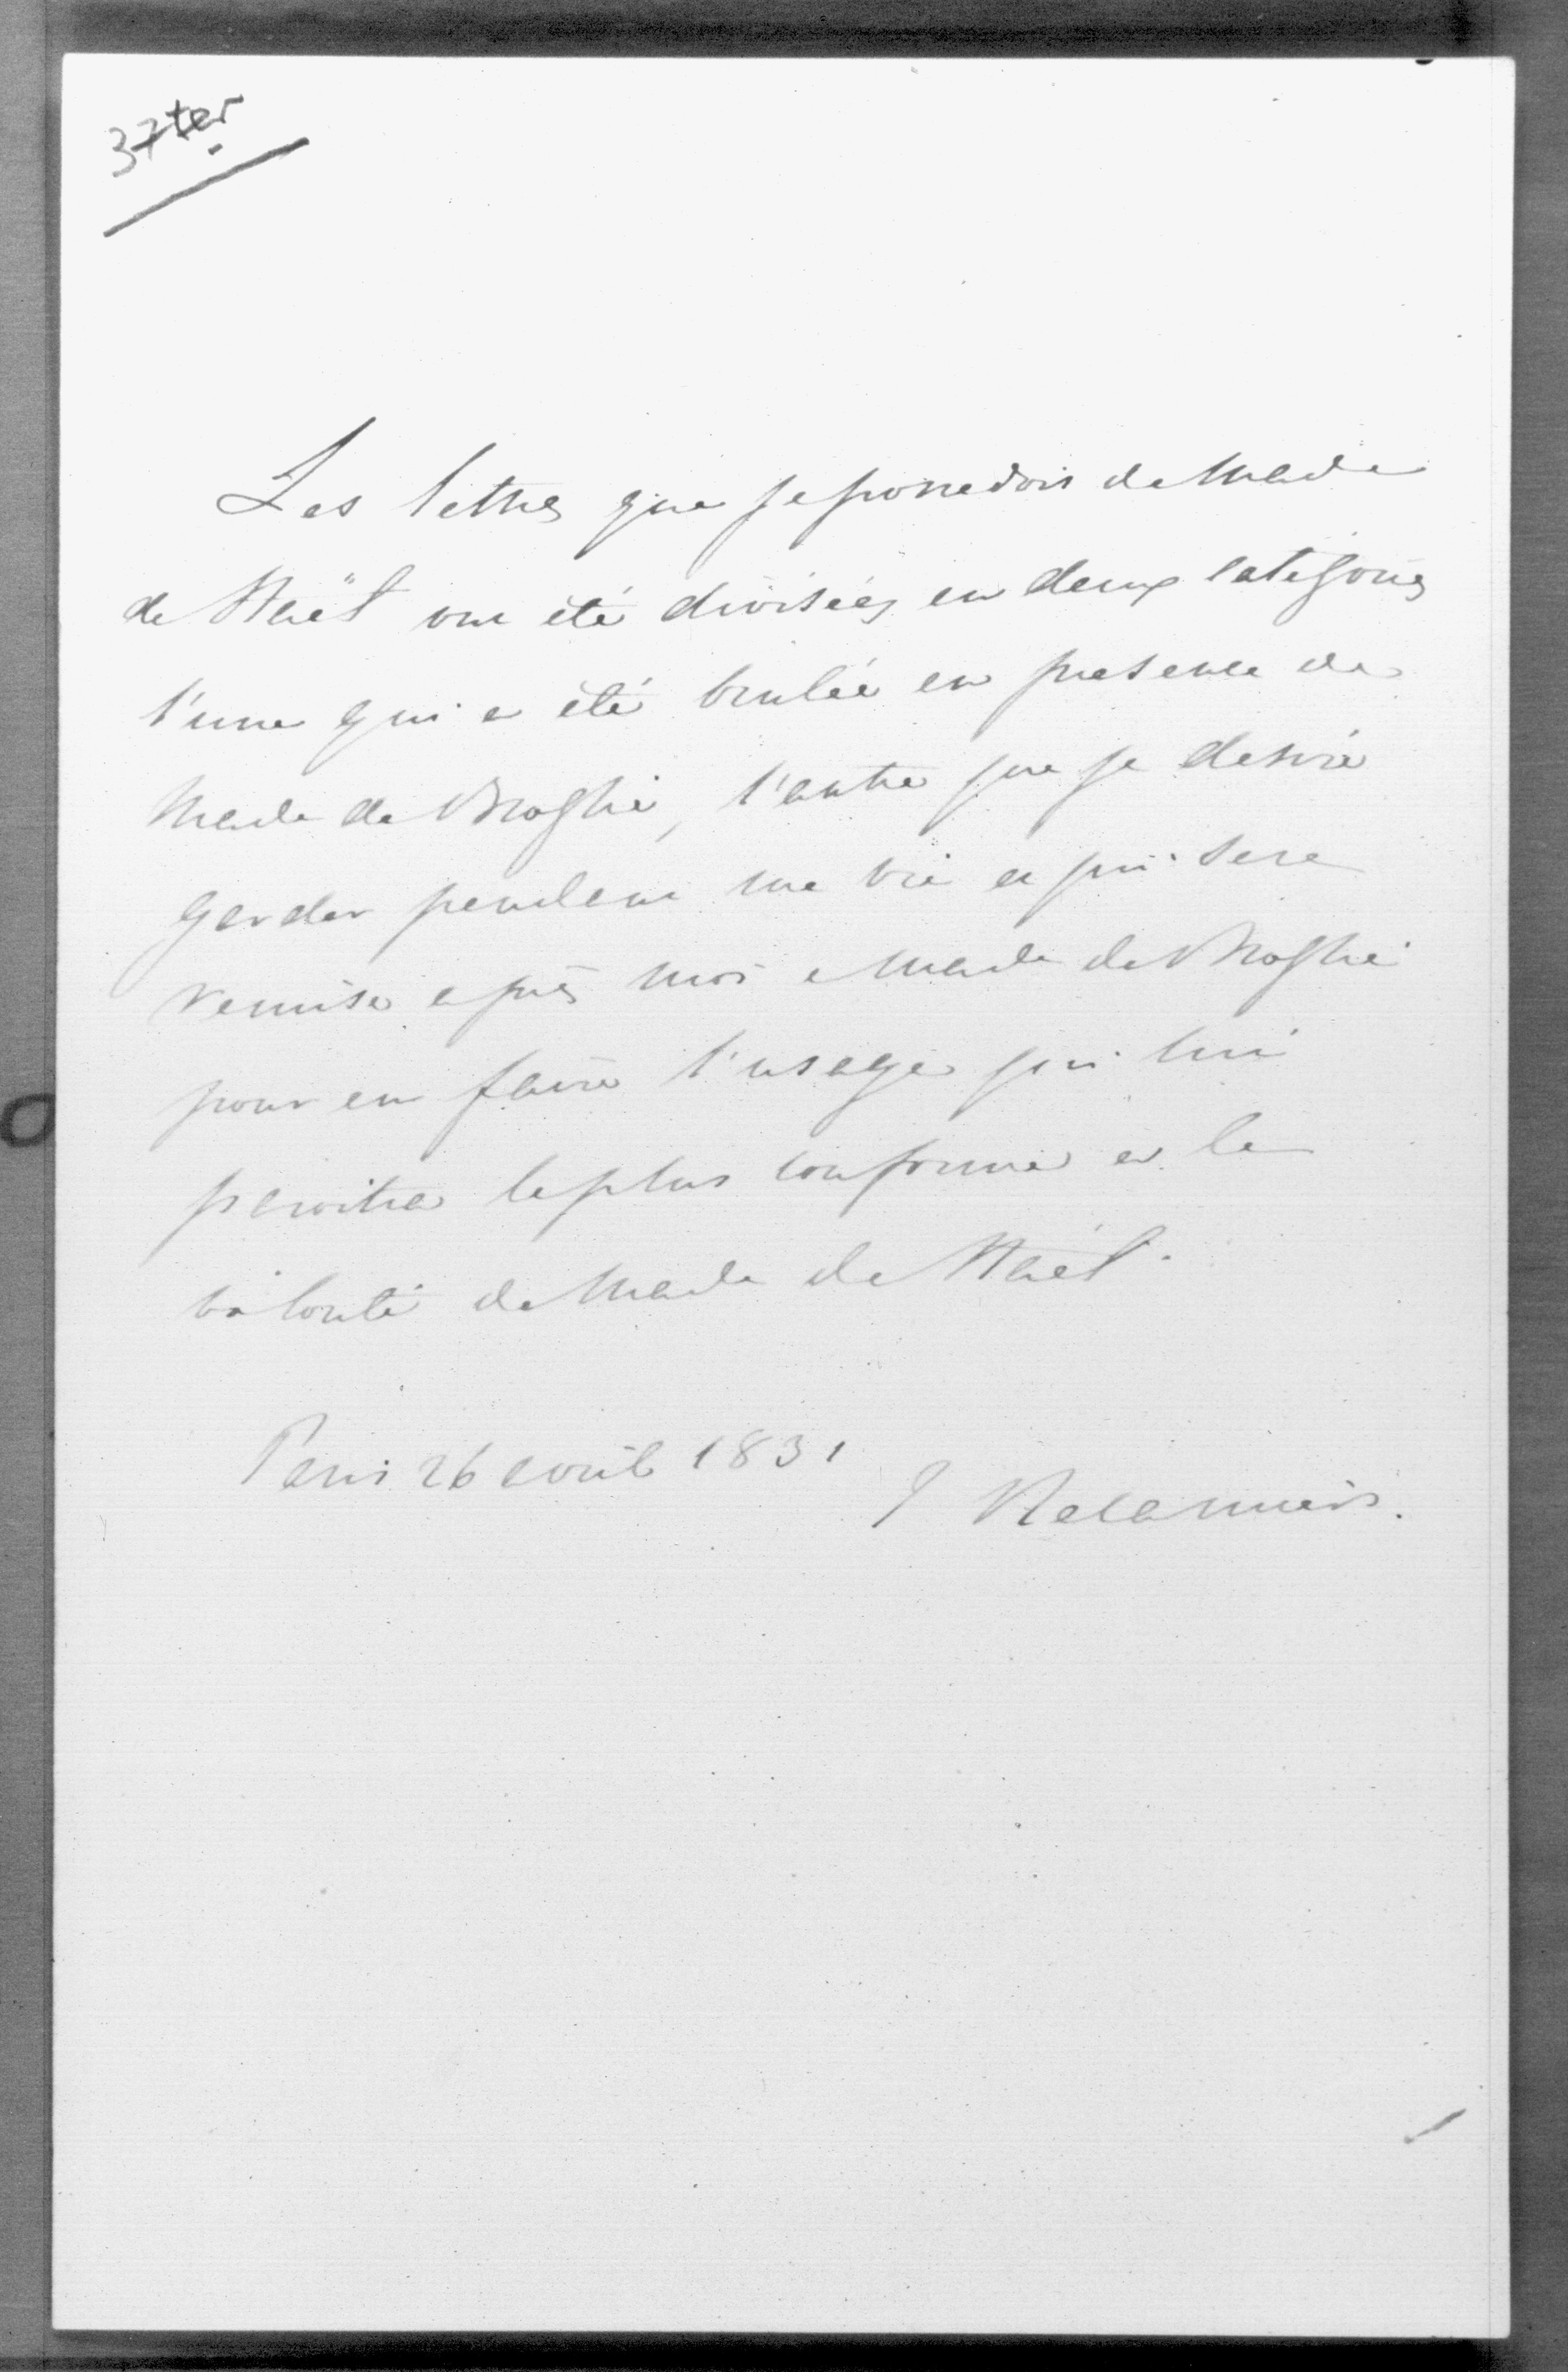 37ter
Les lettres que je possedois de Made
de Staël ont été divisées en deux categories
l'une qui a été brulée en presence de
Made de Broglie, l'autre que je desire
garder pendant ma vie et qui sera
remise après moi a Made de Broglie
pour en faire l'usage qui lui
paroitra le plus conforme a la
volonté de Made de Staël.
Paris 26 avril 1831
J Recamier.